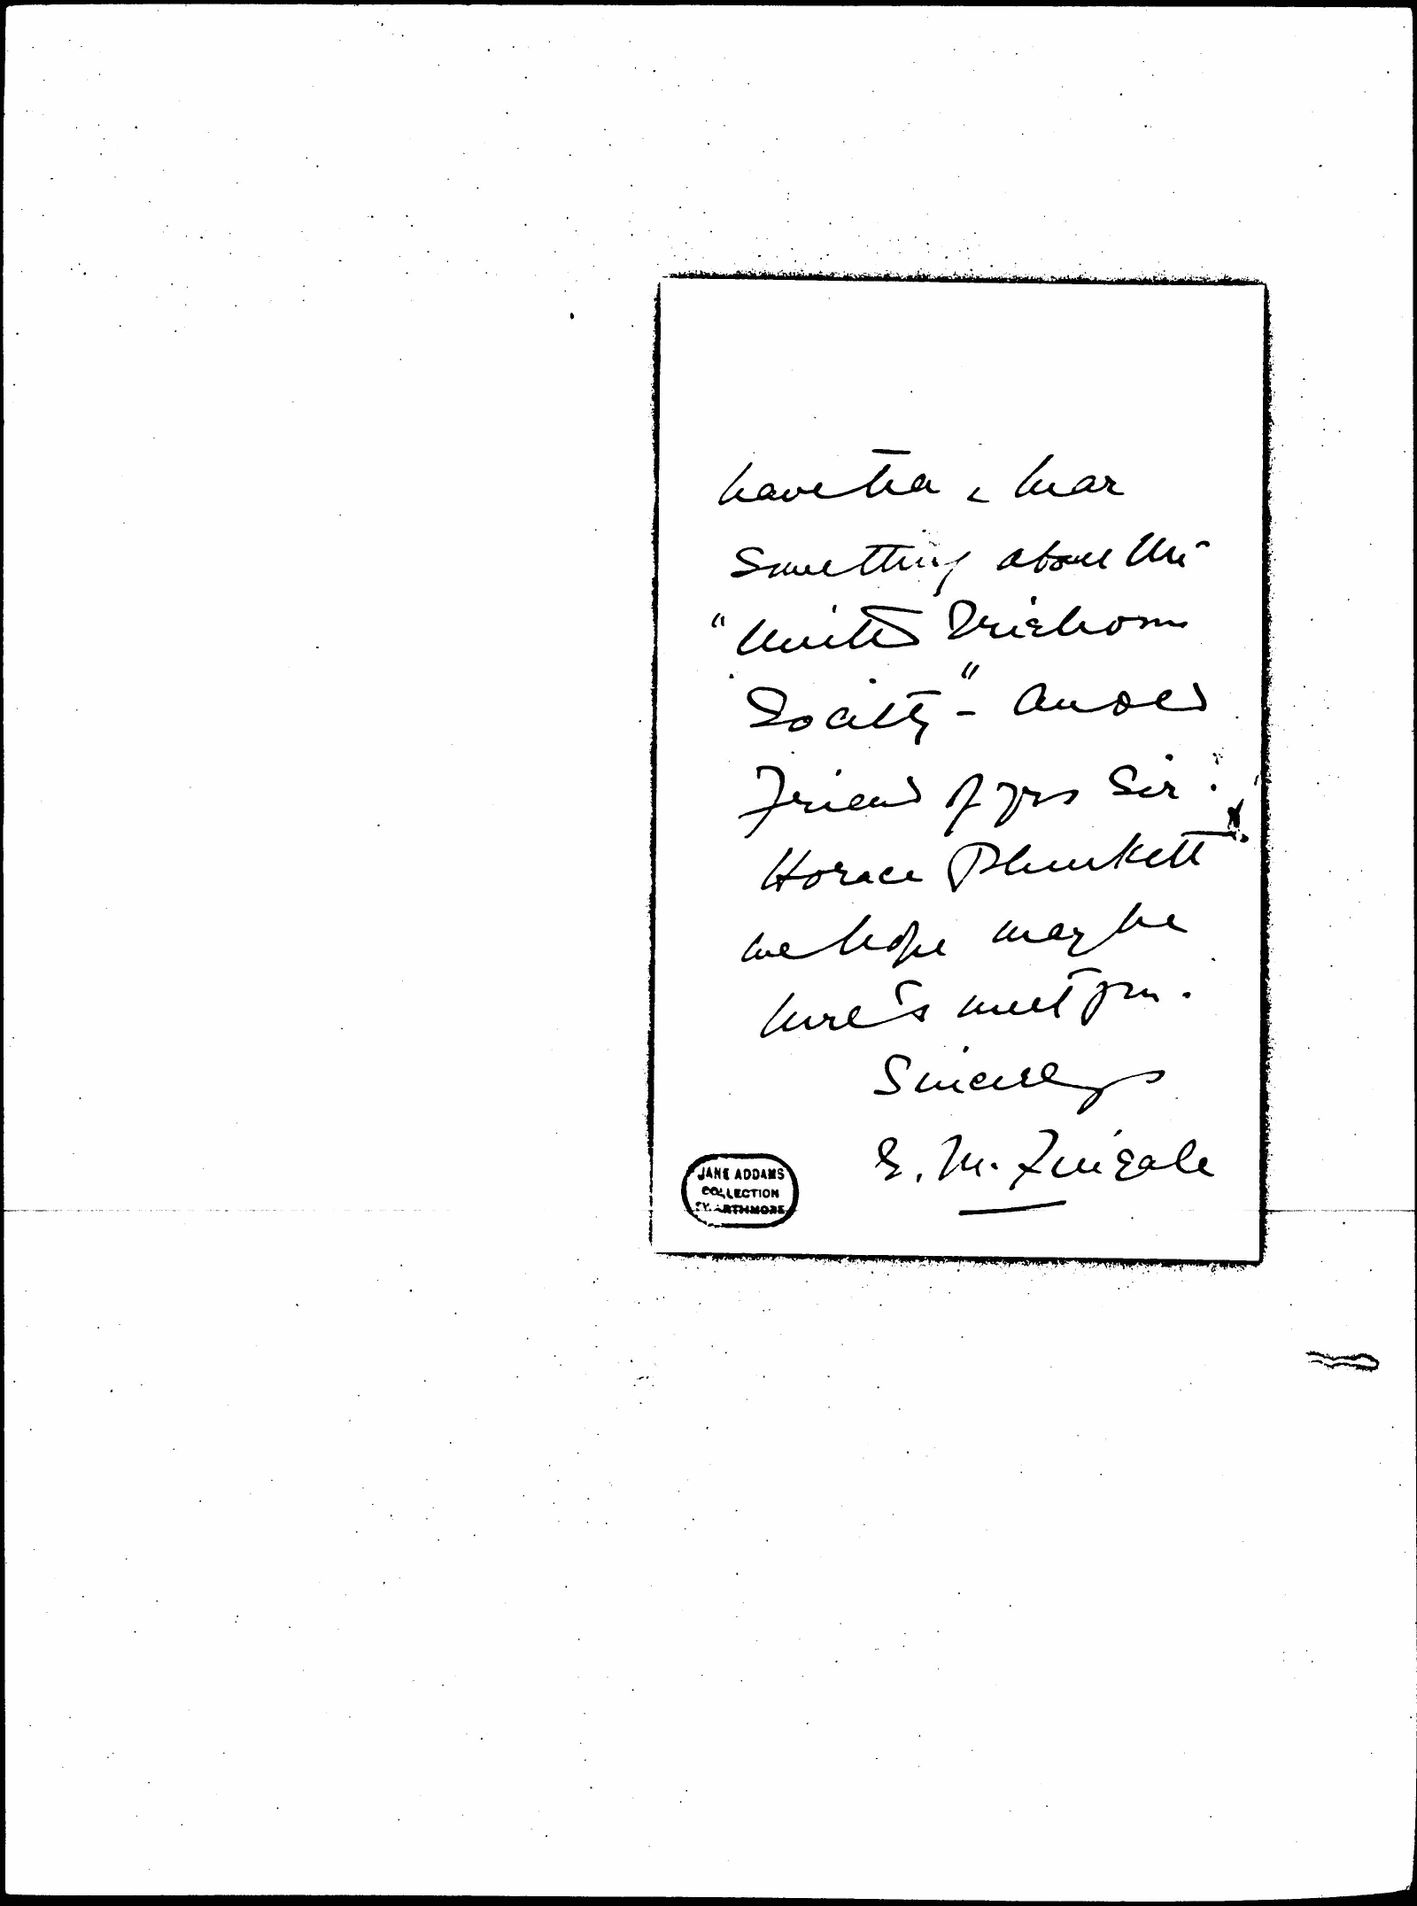 have tea & hear
something about the
"United Irishwomen
Society" - An old
Friend of yrs Sir
Horace Plunkett
we hope may be
here to meet you.
Sincerely yrs
E. M. Fingall
JANE ADDAMS
COLLECTION
SWARTHMORE